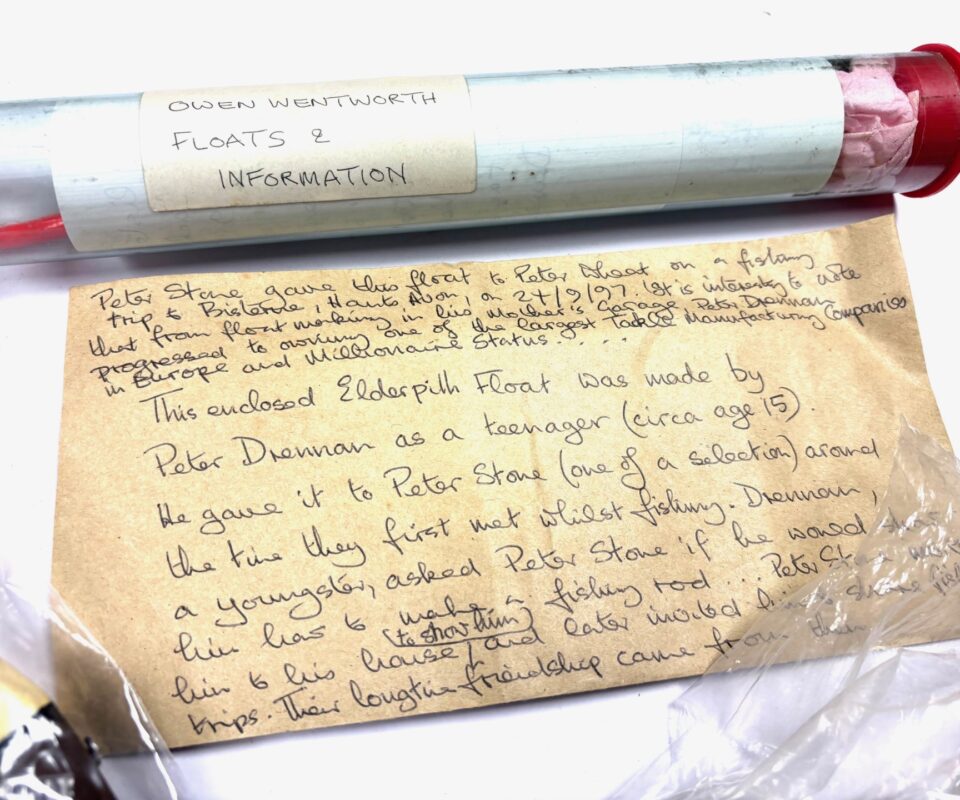 OWEN WENTWORTH
FLOATS &
INFORMATION
Peter Stone gave this float to Peter Wheat on a fishing
trip to Bisterne, Hants Avon, on 24/9/97. It is interesting to note
that from float making in his Mother's Garage Peter Drennan
progressed to owning one of the largest Tackle Manufacturing Companies
in Europe and Millionaire Status.....
This enclosed Elderpith Float was made by
Peter Drennan as a teenager (circa age 15).
He gave it to Peter Stone (one of a selection) around
the time they first met whilst fishing. Drennan,
a youngster, asked Peter Stone if he would show
him how to make a fishing rod... Peter Stone
him to his house, (to show him) and later invited him
trips. Their longtime friendship came from